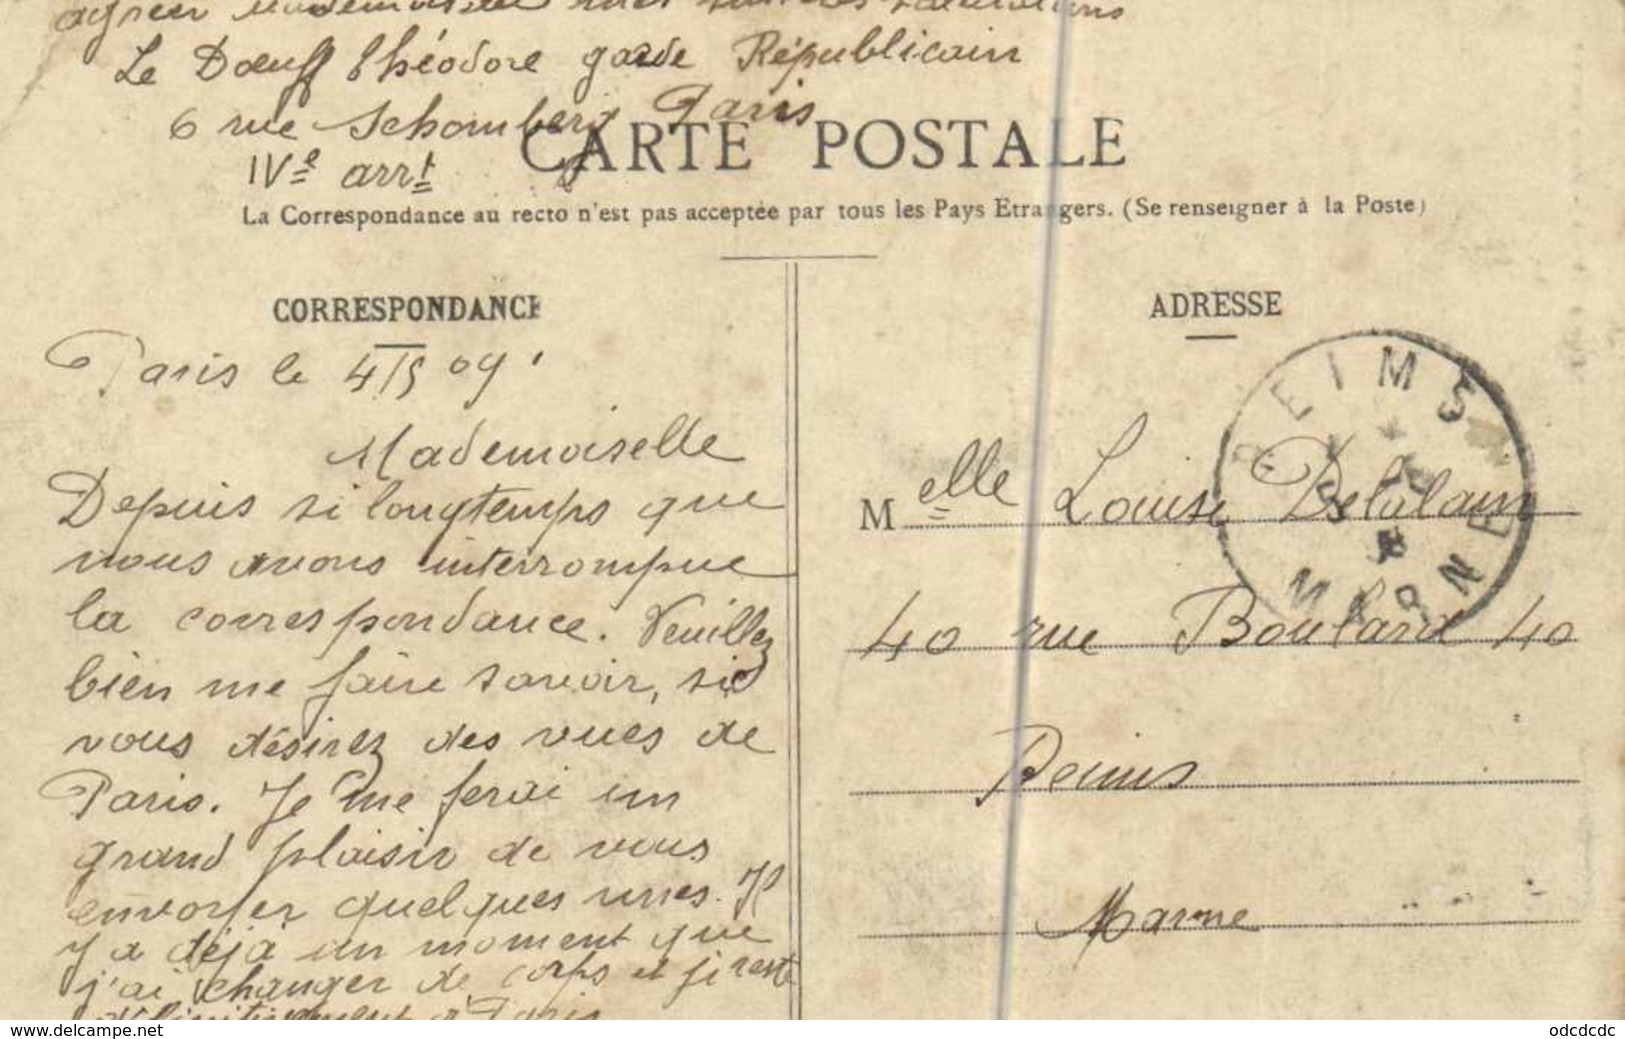 agréer mademoiselle mes sincères salutations
Le Dœuff Théodore garde Républicain
6 rue Schomberg Paris
IVe arrt
CARTE POSTALE
La Correspondance au recto n'est pas acceptée par tous les Pays Etrangers. (Se renseigner à la Poste)
CORRESPONDANCE
Paris le 4/5 09
Mademoiselle
Depuis si longtemps que
nous avons interrompue
la correspondance. Veuillez
bien me faire savoir, si
vous désirez des vues de
Paris. Je me ferai un
grand plaisir de vous
envoyer quelques unes. Il
y a déjà un moment que
j'ai changer de corps et je reste
définitivement à Paris
ADRESSE
REIMS
MARNE
Melle Louise Delalain
40 rue Boulard 40
Reims
Marne
www.delcampe.net
odcdcdc